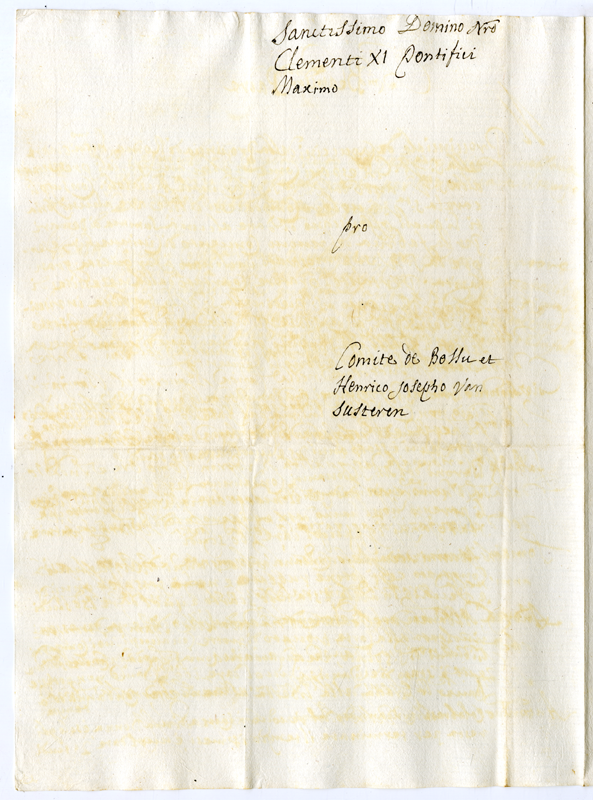 Sanctissimo Domino Nro
Clementi XI Pontifici
Maximo
pro
Comite de Bossu et
Henrico Josepho Van
Susteren